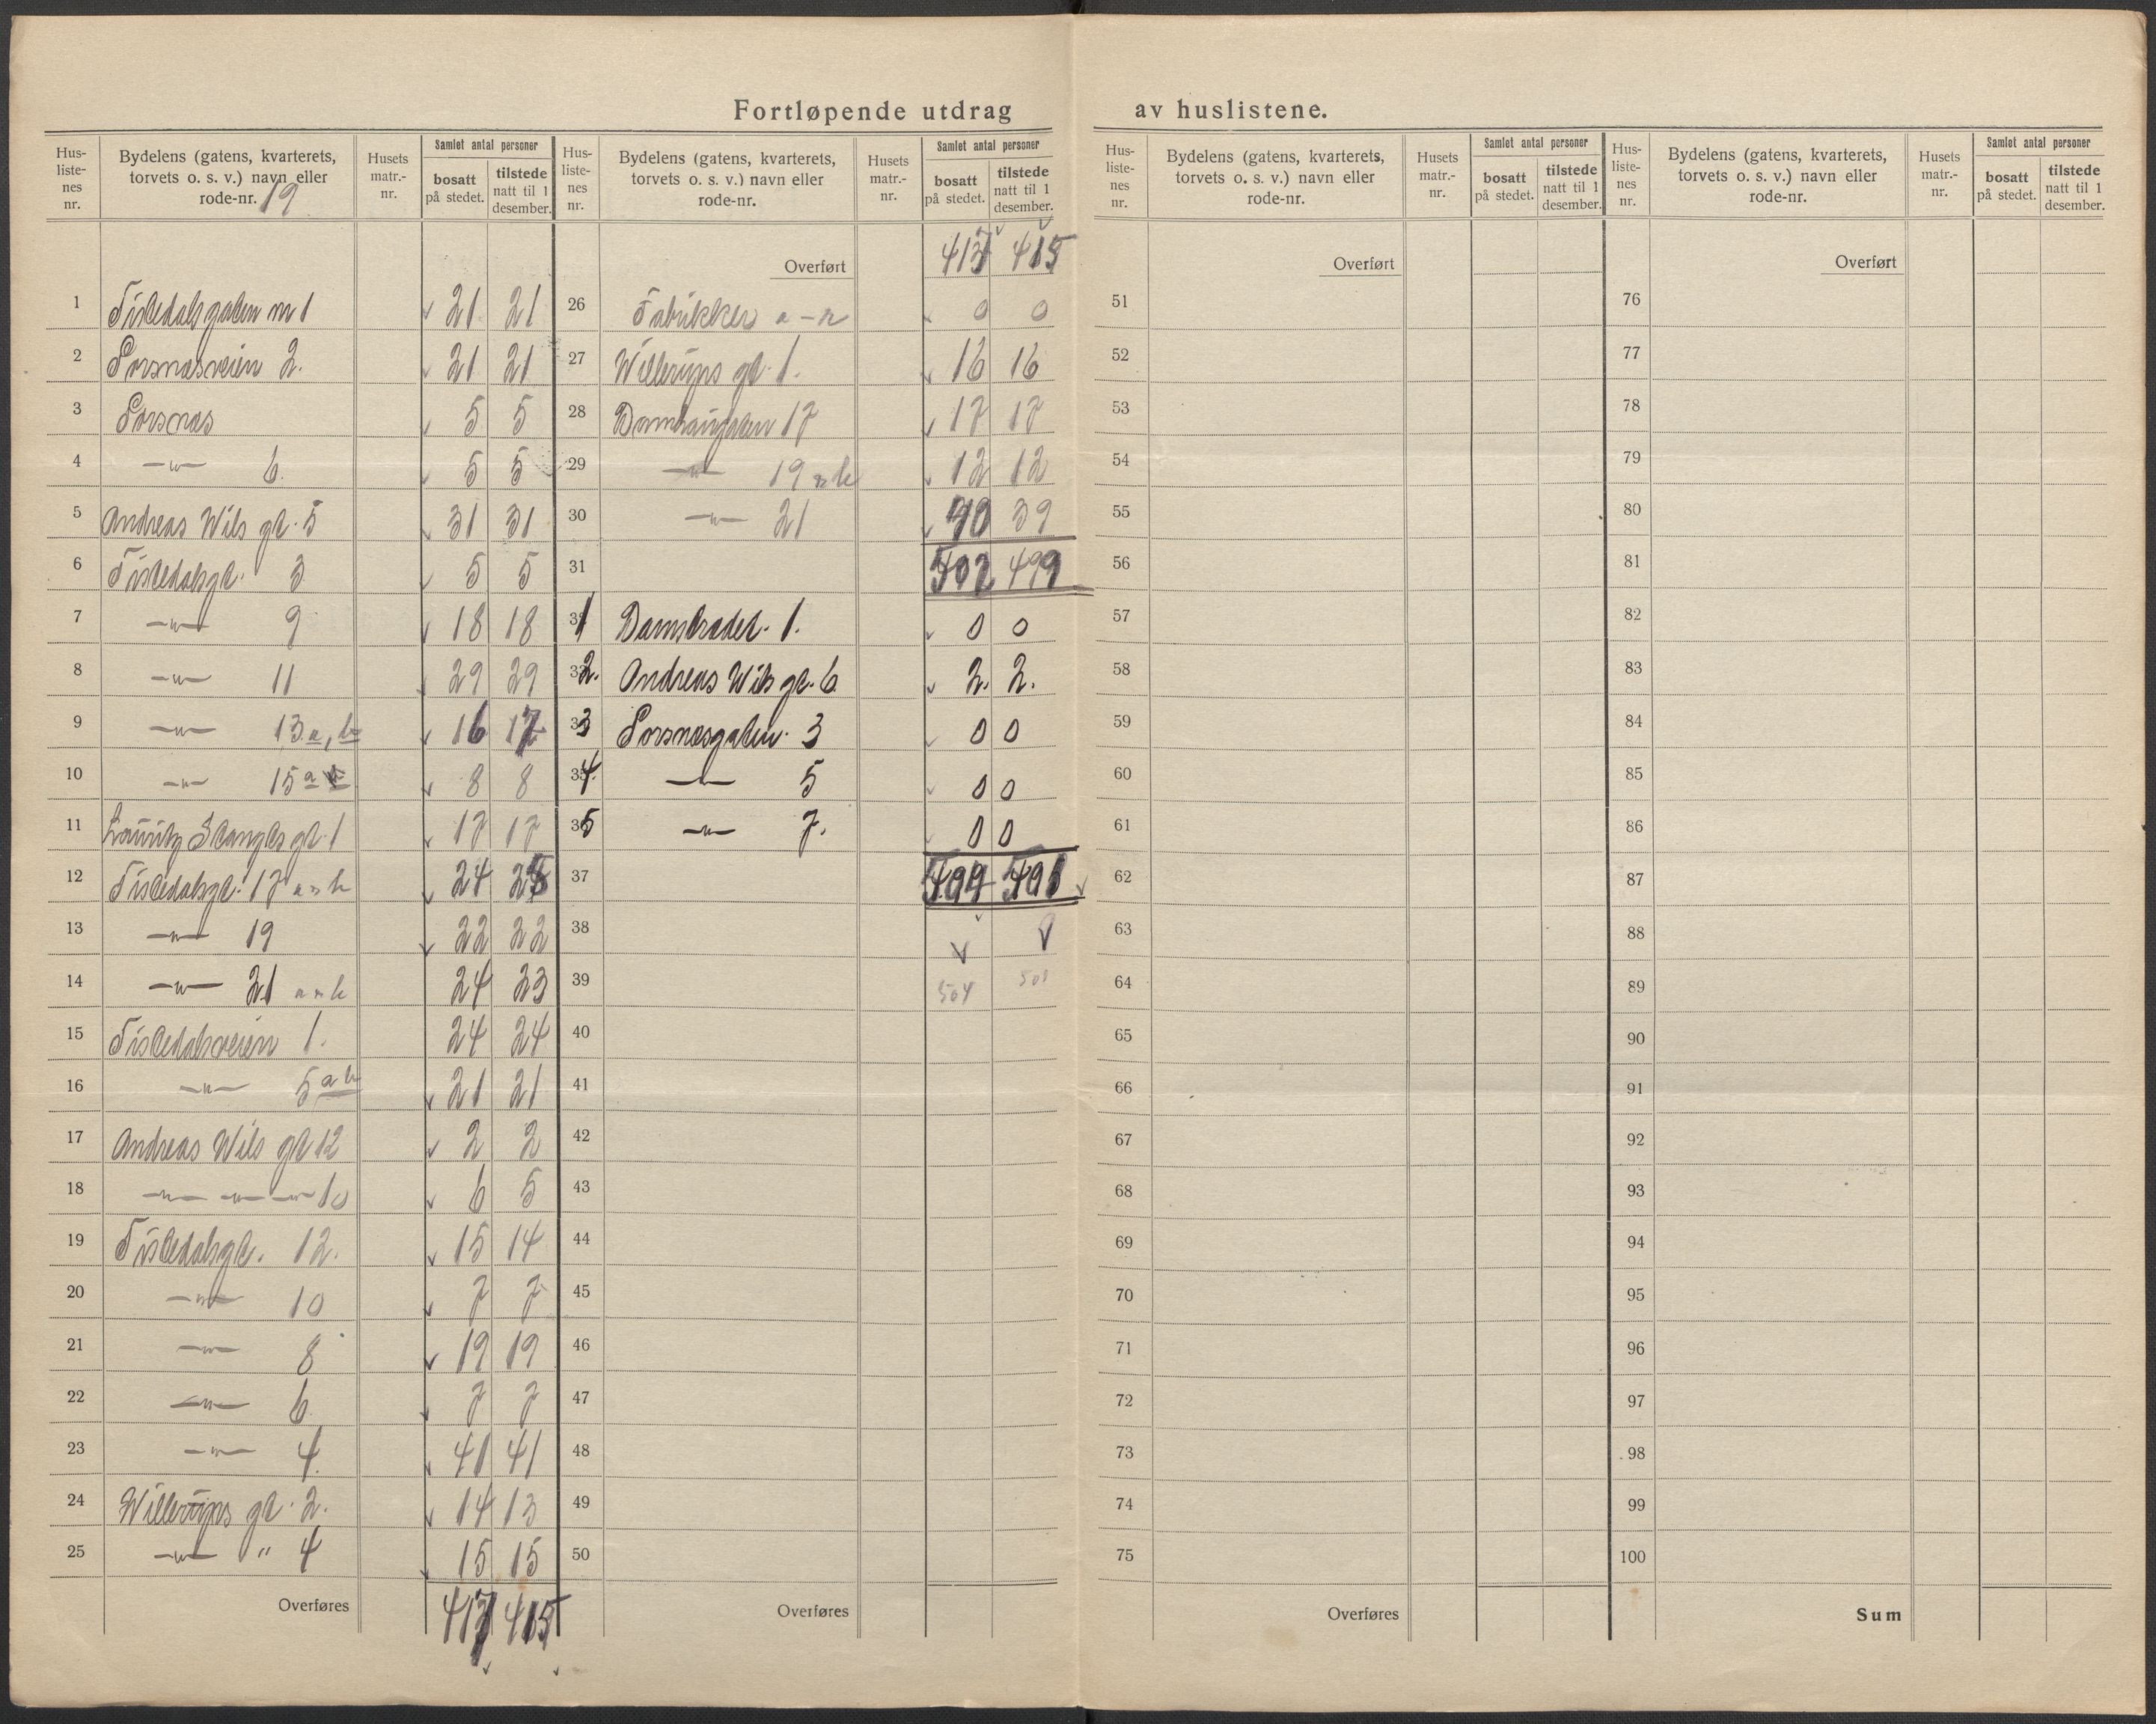 Fortløpende utdrag av huslistene.
Hus-listenes nr. | Bydelens (gatens, kvarterets, torvets o. s. v.) navn eller rode-nr. 19 | Husets matr.-nr. | Samlet antal personer | bosatt på stedet. | tilstede natt til 1 desember.
1 Tistedalsgaten nr 1 21 21
2 Porsnæsveien 2. 21 21
3 Porsnæs 5 5
4 —"— 6. 5 5
5 Andreas Wils gt. 5 31 31
6 Tistedalsgt. 3 5 5
7 —"— 9 18 18
8 —"— 11 29 29
9 —"— 13 a, b 16 17
10 —"— 15 a 8 8
11 Lauritz Stangs gt. 1 17 17
12 Tistedalsgt. 17 a & b 24 25
13 —"— 19 22 22
14 —"— 21 a & b 24 23
15 Tistedalsveien 1. 24 24
16 —"— 5 a b 21 21
17 Andreas Wils gt 12 2 2
18 —"— —"— —"— 10 6 5
19 Tistedalsgt. 12. 15 14
20 —"— 10 7 7
21 —"— 8 19 19
22 —"— 6 7 7
23 —"— 4. 41 41
24 Willerups gt. 2. 14 13
25 —"— " 4 15 15
Overføres 417 415
Hus-listenes nr. | Bydelens (gatens, kvarterets, torvets o. s. v.) navn eller rode-nr. | Husets matr.-nr. | Samlet antal personer | bosatt på stedet. | tilstede natt til 1 desember.
Overført 417 415
26 Fabrikker 0 0
27 Willerups gt. 1. 16 16
28 Damhaugaten 17 17 17
29 —"— 19 a & b 12 12
30 —"— 21 40 39
31 502 499
1 Damstrædet. 1. 0 0
2. Andreas Wils gt. 6 2. 2.
3 Porsnæsgaten. 3 0 0
4. —"— 5 0 0
5 —"— 7. 0 0
37 504 501
38
39 504 501
40
41
42
43
44
45
46
47
48
49
50
Overføres
Hus-listenes nr. | Bydelens (gatens, kvarterets, torvets o. s. v.) navn eller rode-nr. | Husets matr.-nr. | Samlet antal personer | bosatt på stedet. | tilstede natt til 1 desember.
Overført
51
52
53
54
55
56
57
58
59
60
61
62
63
64
65
66
67
68
69
70
71
72
73
74
75
Overføres
Hus-listenes nr. | Bydelens (gatens, kvarterets, torvets o. s. v.) navn eller rode-nr. | Husets matr.-nr. | Samlet antal personer | bosatt på stedet. | tilstede natt til 1 desember.
Overført
76
77
78
79
80
81
82
83
84
85
86
87
88
89
90
91
92
93
94
95
96
97
98
99
100
Sum